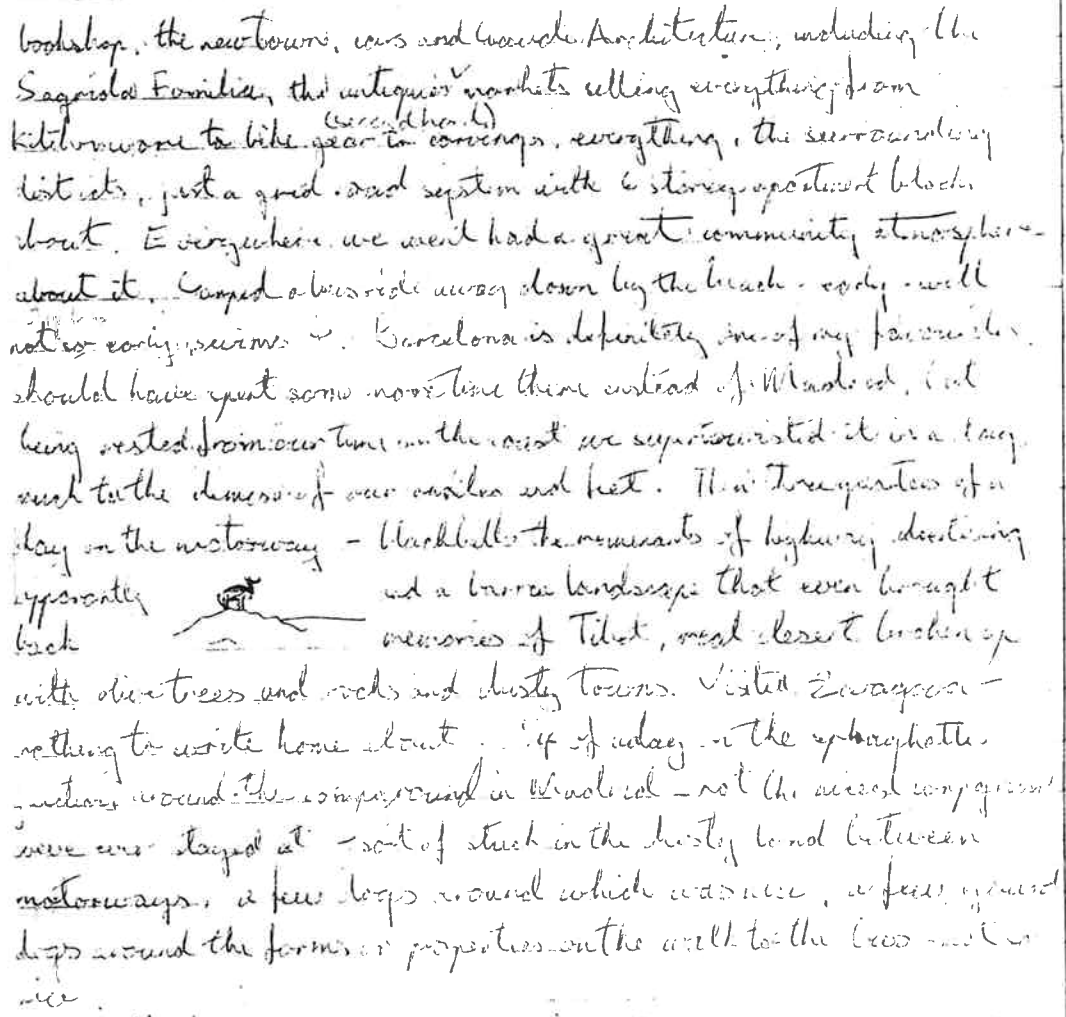 bookshop, the new town, and Architecture, including the
Sagrida Familia, the antiques markets selling everything from
(secondhand)
kitchenware to bike gear to carvings, everything, the surrounding
districts, just a grid road system with 6 storey apartment blocks
about. Everywhere we went had a great community atmosphere
about it. Camped a bus ride away down by the beach - early - well
not so early swims. Barcelona is definitely one of my favourites,
should have spent some more time there instead of Madrid, but
being rested from our time on the coast we supertouristed it in a day
much to the of our and feet. Three quarters of a
day on the motorway - the remenants of highway advertising
apparently and a barren landscape that even brought
back memories of Tibet, real desert broken up
with olive trees and rocks and dusty towns. Visited Zaragoza -
nothing to write home about. of a day on the sphaghetti
junctions around the campground in Madrid - not the nicest campground
weve ever stayed at - sort of stuck in the dusty land between
motorways, a few dogs around which was nice, a few guard
dogs around the farms or properties on the walk to the bus - not so
nice.